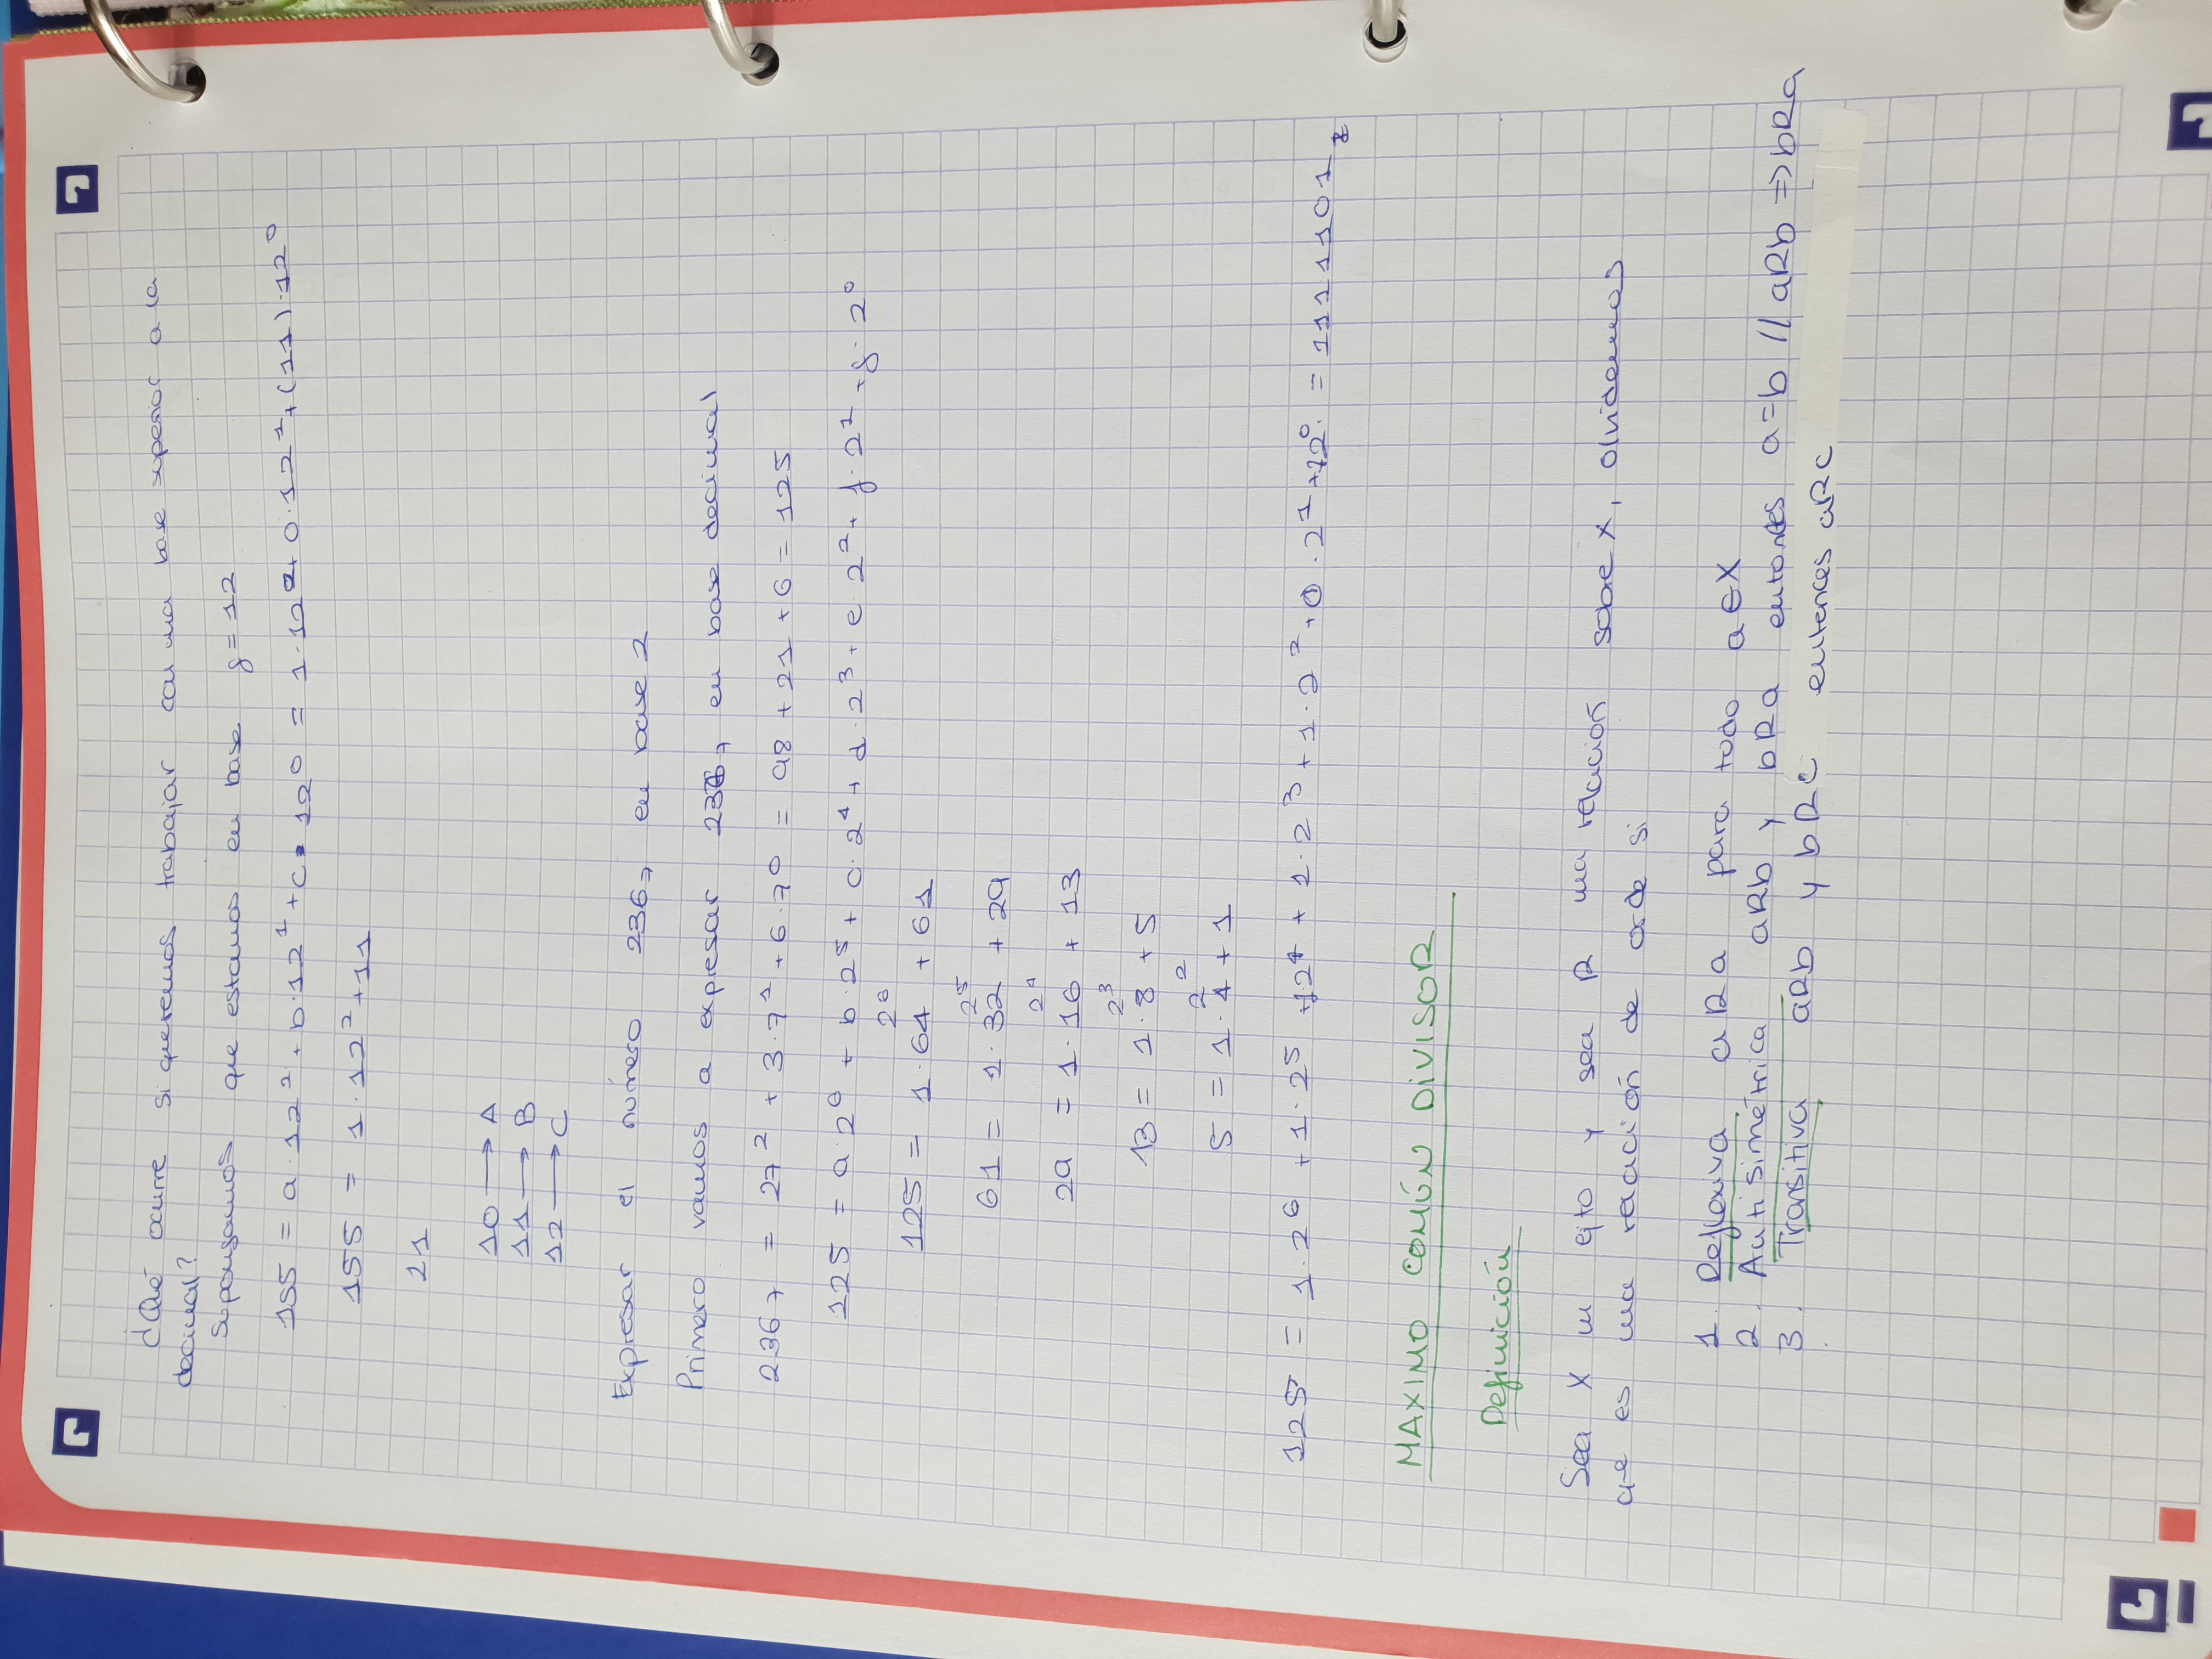 ¿Qué ocurre si queremos trabajar con una base superior a la
decimal?
Supongamos que estamos en base g=12
155 = a·12² + b·12¹ + c·12⁰ = 1·12² + 0·12¹ + (11)·12⁰
155 = 1·12² + 11
21
10 → A
11 → B
12 → C
Expresar el número 236₇ en base 2
Primero vamos a expresar 236₇ en base decimal
236₇ = 27² + 3·7¹ + 6·7⁰ = 98 + 21 + 6 = 125
125 = a·2⁶ + b·2⁵ + c·2⁴ + d·2³ + e·2² + f·2¹ + g·2⁰
2⁶
125 = 1·64 + 61
2⁵
61 = 1·32 + 29
2⁴
29 = 1·16 + 13
2³
13 = 1·8 + 5
2²
5 = 1·4 + 1
125 = 1·2⁶ + 1·2⁵ + 1·2⁴ + 1·2³ + 1·2² + 0·2¹ + 1·2⁰ = 1111101₂
MAXIMO COMÚN DIVISOR
Definición
Sea X un cjto y sea R una relación sobre X, olvidemos
que es una relación de orde si
1. Reflexiva aRa para todo a∈X
2. Antisimétrica aRb y bRa entonces a=b // aRb => bRa
3. Transitiva aRb y bRc entences aRc